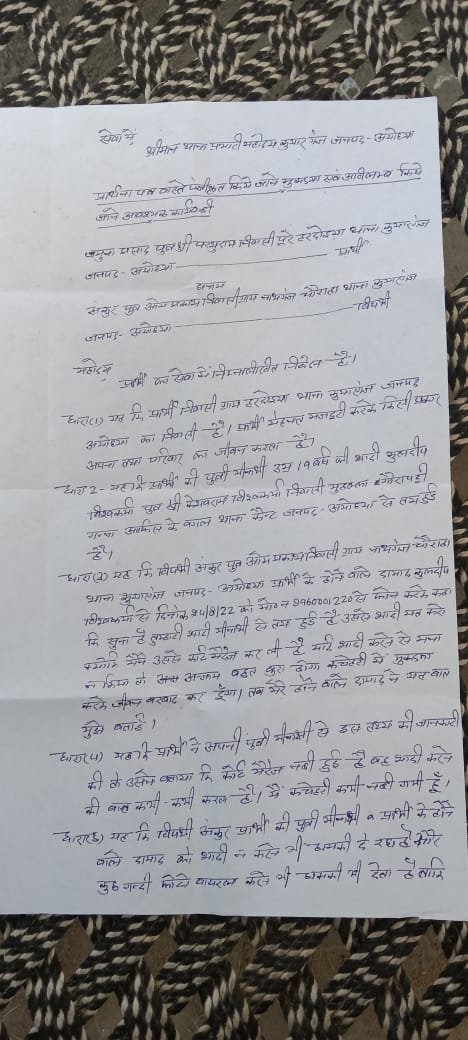 सेवा में,
श्रीमान थाना प्रभारी महोदय कुमारगंज जनपद - अयोध्या
प्रार्थना पत्र वास्ते पंजीकृत किये जाने मुकदमा एवं अविलम्ब किये
जाने आवश्यक कार्यवाही
जमुना प्रसाद पुत्र श्री परशुराम निवासी पूरे हरदोइया थाना कुमारगंज
जनपद - अयोध्या ——— प्रार्थी
बनाम
अंकुर पुत्र ओम प्रकाश निवासी ग्राम नाथगंज चौराहा थाना कुमारगंज
जनपद - अयोध्या ——— विपक्षी
महोदय
प्रार्थी का सेवा में निम्नलिखित निवेदन है।
धारा(1) यह कि प्रार्थी निवासी ग्राम हरदोइया थाना कुमारगंज जनपद
अयोध्या का निवासी है। प्रार्थी मेहनत मजदूरी करके किसी प्रकार
अपना तथा परिवार का जीवन करता है।
धारा 2- यह कि प्रार्थी की पुत्री मीनाक्षी उम्र 19 वर्ष की शादी कुलदीप
विश्वकर्मा पुत्र श्री विश्वकर्मा निवासी मुहल्ला
गन्ना आफिस के बगल थाना कैन्ट जनपद - अयोध्या से तय हुई
है।
धारा(3) यह कि विपक्षी अंकुर पुत्र ओम प्रकाश निवासी ग्राम नाथगंज चौराहा
थाना कुमारगंज जनपद - अयोध्या प्रार्थी के होने वाले दामाद कुलदीप
विश्वकर्मा से दिनांक 24/8/22 को मो०न० 9960001220 से फोन करके कहा
कि सुना है तुम्हारी शादी मीनाक्षी से तय हुई है उससे शादी मत करो
क्योंकि मैंने उससे कोर्ट मैरेज कर ली है यदि शादी करने से मना
न किया तो अंजाम बहुत बुरा होगा कचेहरी में मुकदमा
करके जीवन बरबाद कर दूँगा। तब मेरे होने वाले दामाद ने यह बात
मुझे बताई।
धारा(4) यह कि प्रार्थी ने अपनी पुत्री मीनाक्षी से इस तथ्य की जानकारी
की तो उसने बताया कि कोर्ट मैरेज नही हुई है वह शादी करने
की बात कभी-कभी करता है। मैं कचेहरी कभी नही गयी हूँ।
धारा(5) यह कि विपक्षी अंकुर प्रार्थी की पुत्री मीनाक्षी व प्रार्थी के होने
वाले दामाद को शादी न करने की धमकी दे रहा है और
कुछ गन्दी फोटो वायरल करने की धमकी भी देता है ताकि